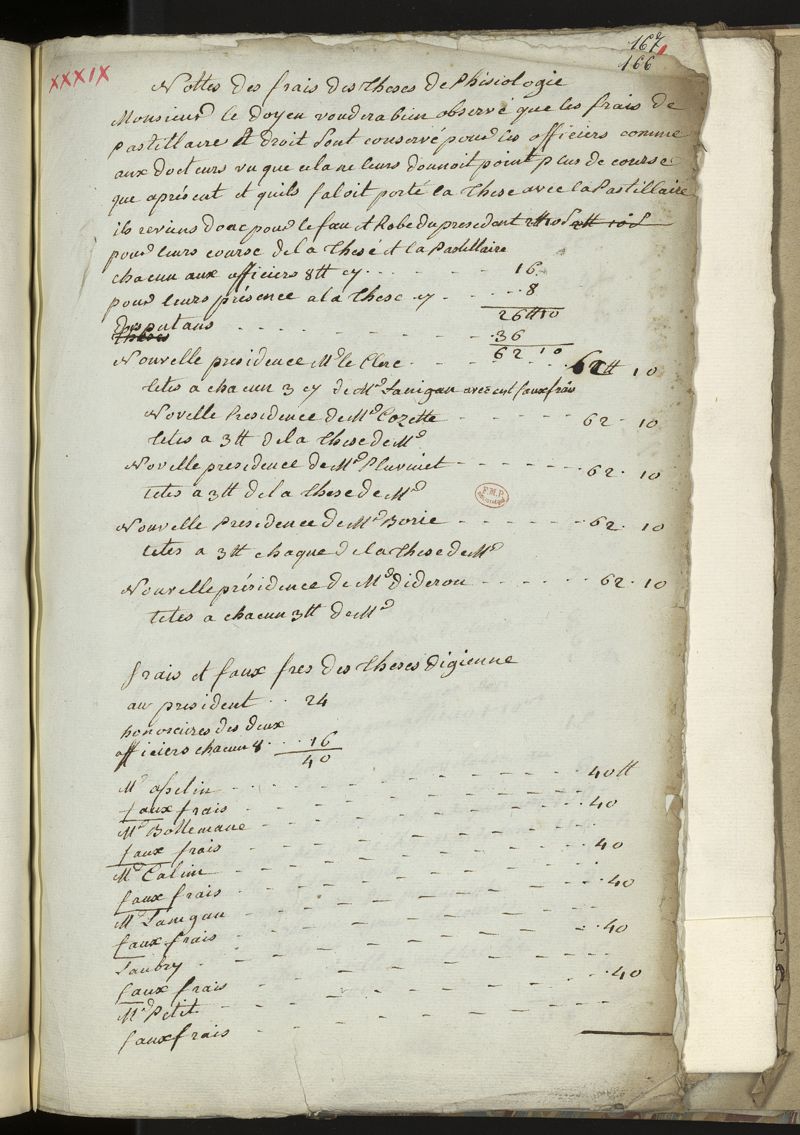 167
166
XXXIX
Nottes des frais des Theses de Phisiologie
Monsieur le doyen voudera bien observé que les frais de
pastillaire et droit sont conservé pour les officiers comme
aux docteurs vu que cela ne leurs donnoit point plus de course
que aprésent et quils faloit porté la These avec la Pastillaire
ils reviens donc pour le fau et Robe du president 2tt 10s 2tt 10s
pour leurs course de la Thesé et la Pastillaire
chacun aux officiers 8tt cy - - - - - 16
pour leurs présence a la These cy - - - 8
26tt 10
Disputans - - - - - 36
Theses
62 10
Nouvelle presidence Mr le Clerc - - - - - 62tt 10
tetes a chacun 3 cy de Mr Lanigan avec est fauxfrais
Novelle Presidence de Mr Cozette - - - - 62 - 10
tetes a 3tt de la These de Mr
Novelle presidence de Mr Pluvinet - - - - - 62 . 10
tetes a 3tt de la These de Mr
Nouvelle Presidence de Mr Borie - - - - - 62 . 10
tetes a 3tt chaque de la These de Mr
Nouvelle présidence de Mr diderou - - - - - 62 . 10
tetes a chacun 3tt de Mr
F.M.P.
frais et faux fres des Theses digienne
au president . . 24
honoreires des deux
officiers chacun 8 . . . 16
40
Mr asselin - - - - - 40tt
faux frais - - - - - 40
Mr Bottemane
faux frais - - - - - 40
Mr Calin
faux frais - - - - - 40
Mr Lanigan
faux frais - - - - - 40
Laubry
faux frais - - - - - 40
Mr Petit
fauxfrais